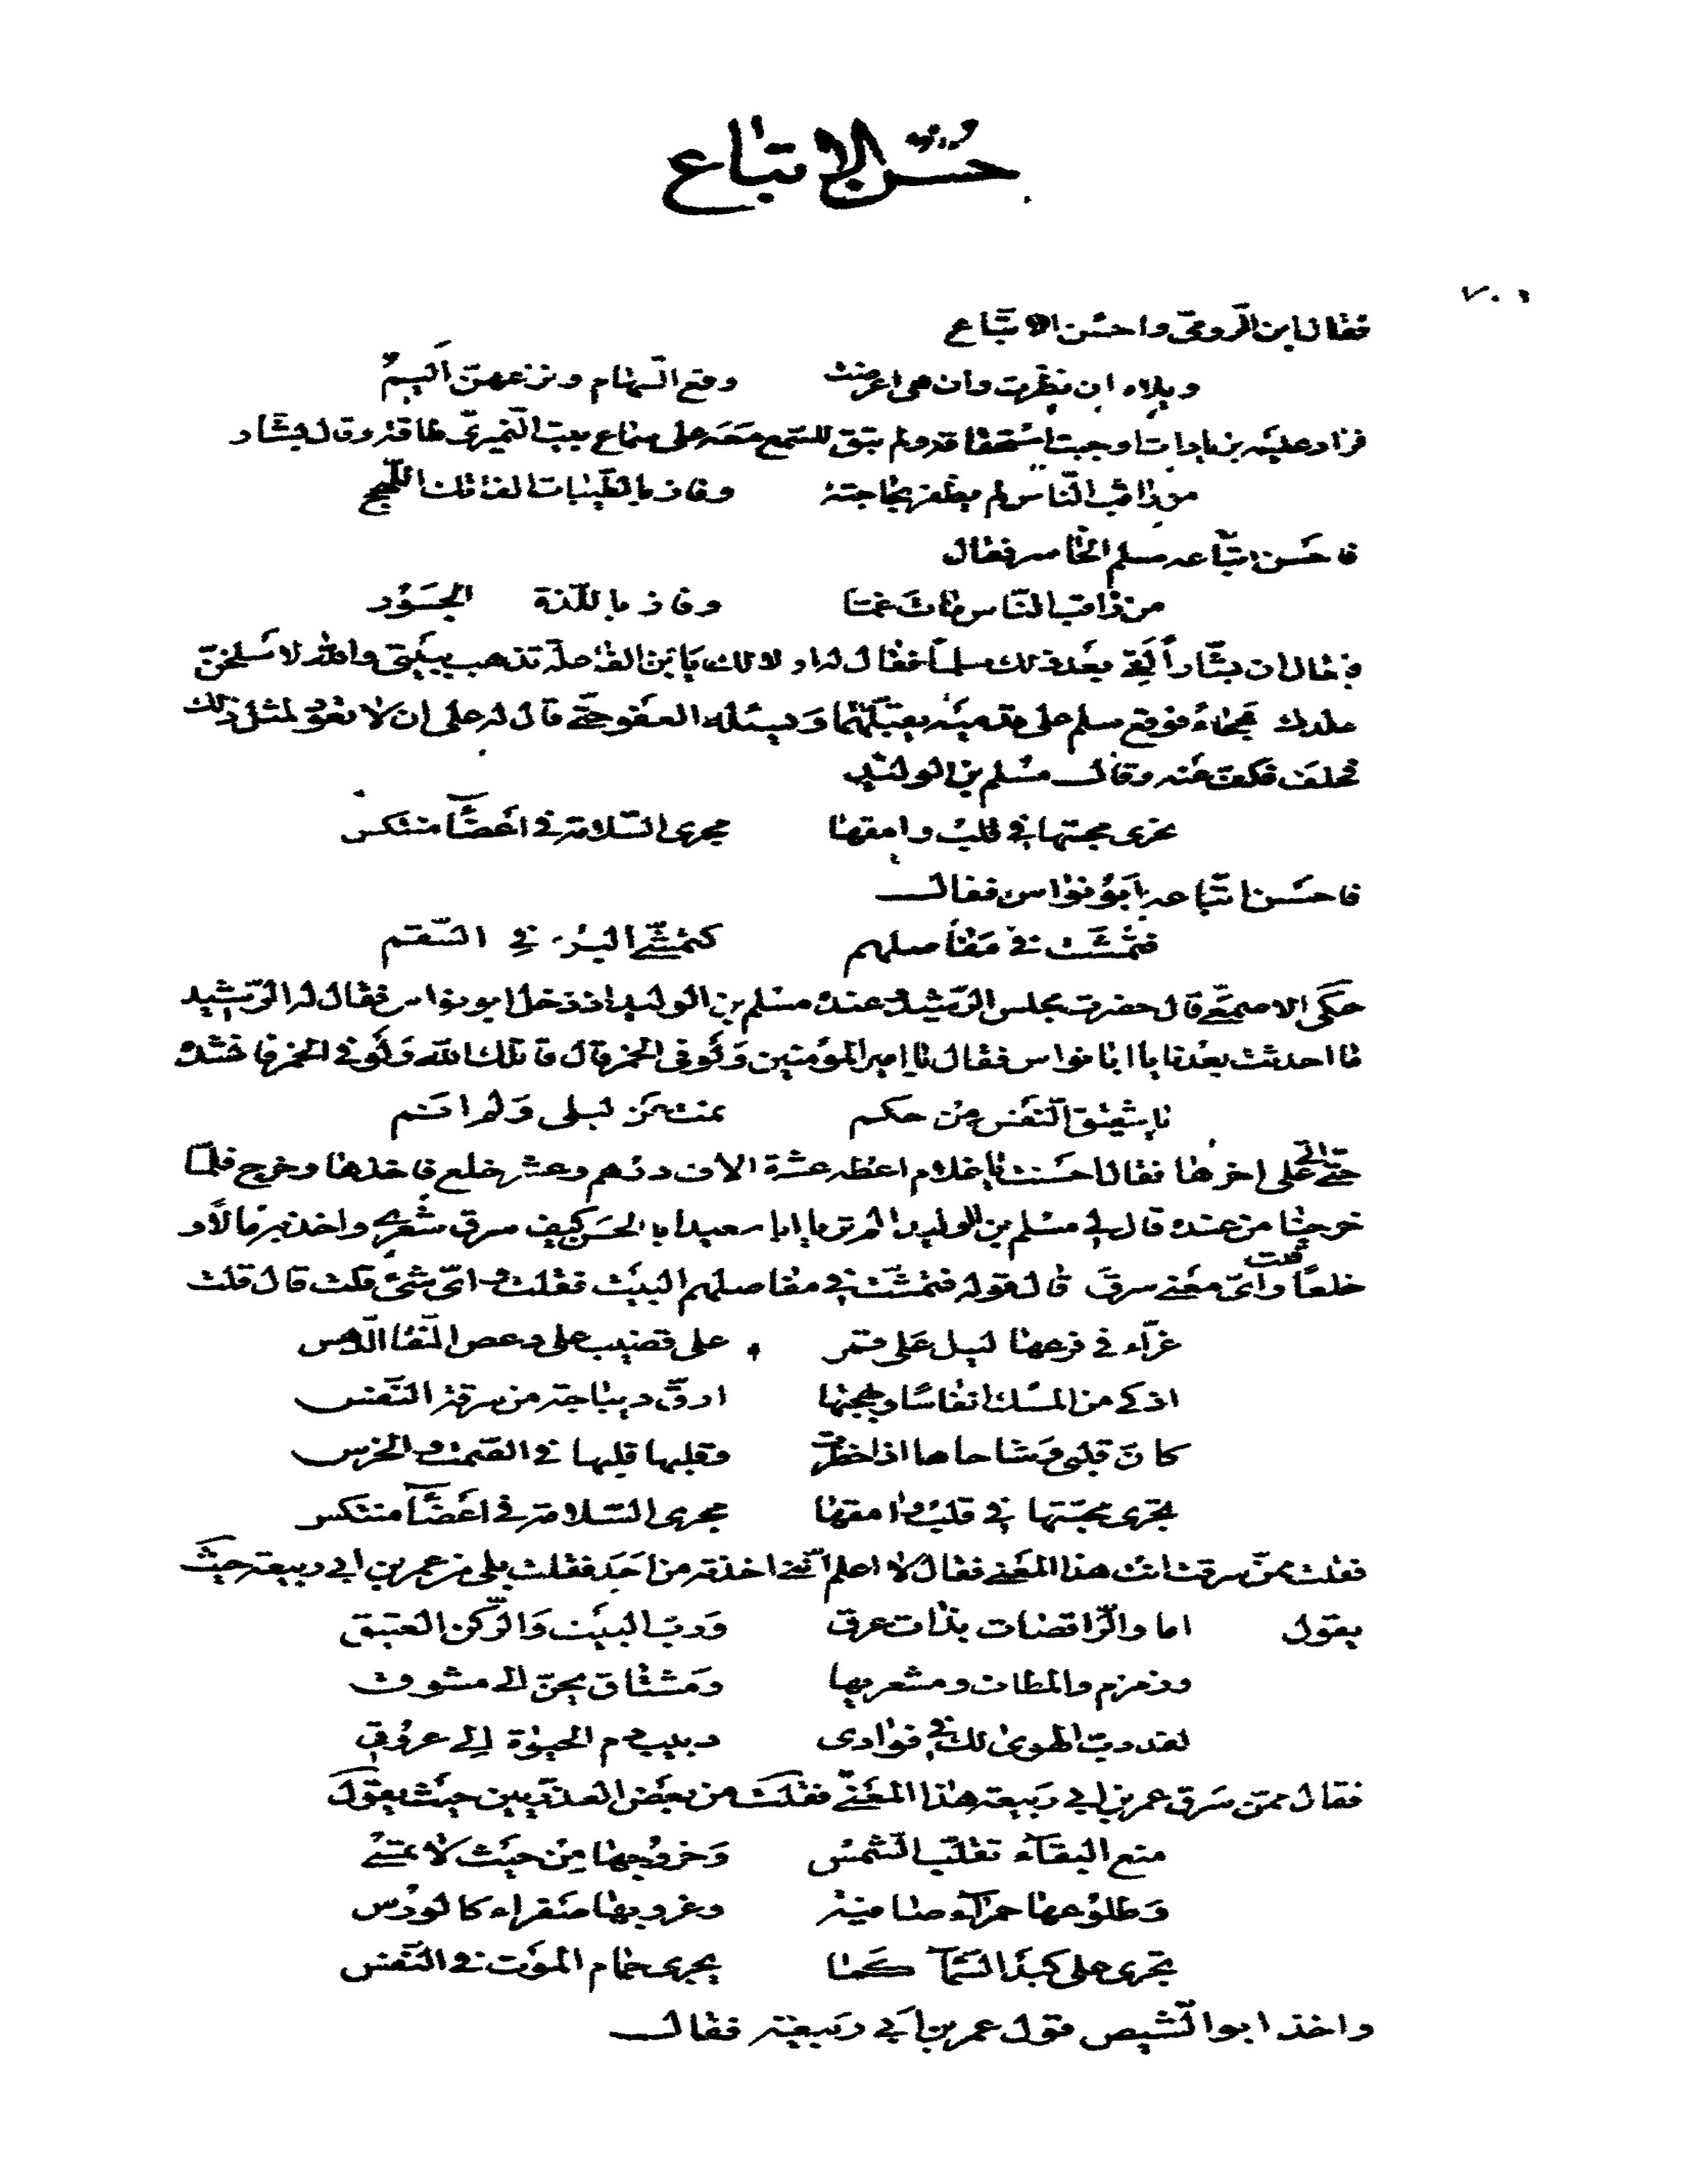 حُسن الاتباع
٧٠٦
فقال ابن الرومى واحسن الاتباع
ويلاه ان نظرت وان هى اعرضت وقع السهام ونزعهن اليم
فزاد عليه بزيادات اوجبت استحقاقه ولم يبق للسمع معه على سماع بيت النميرى طاقة وقال بشار
من راقب الناس لم يظفر بحاجته وفاز بالطيبات الفاتك اللهج
فاحسن اتباعه سلم الخاسر فقال
من راقب الناس مات غما وفاز باللذة الجسور
فيقال ان بشاراً لقى بعد ذلك سلماً فقال له اولا لك يا ابن الفاعلة تذهب ببيتى والله لاسلخن
جلدك فجاء فوقع سلم على قدميه يقبلهما ويسئله العفو حتى قال له على ان لا تعود لمثل ذلك
فحلف فكف عنه وقال مسلم بن الوليد
تجرى محبتها فى قلب وامقها مجرى السلامة فى اعضآ منتكس
فاحسن اتباعه ابو نواس فقال
فتمشت فى مفاصلهم كتمشى البرء فى السقم
حكى الاصمعى قال حضرت مجلس الرشيد وعنده مسلم بن الوليد اذ دخل ابو نواس فقال له الرشيد
ما احدثت بعدنا يا ابا نواس فقال يا امير المؤمنين ولو فى الخمر قال قاتلك الله ولو فى الخمر فانشده
يا شقيق النفس من حكم نمت عن ليلى ولم انم
حتى اتى على اخرها فقال احسنت يا غلام اعطه عشرة الاف درهم وعشر خلع فاخذها وخرج فلما
خرجنا من عنده قال لى مسلم بن الوليد الم تر يا ابا سعيد الى الحسن كيف سرق شعرى واخذ به مالاً و
خلعاً قلت واى معنى سرق قال قوله فتمشت فى مفاصلهم البيت فقلت واى شئ قلت قال قلت
غرآء فى فرعها ليل على قمر على قضيب على دعص النقا الدهس
اذكى من المسك انفاسا وبهجتها ارق ديباجة من رقة النفس
كان قلبى وشاحاها اذا خطرت وقلبها قلبها فى الصمت والخرس
تجرى محبتها فى قلب وامقها مجرى السلامة فى اعضآ منتكس
فقلت ممن سرقت انت هذا المعنى فقال لا اعلم اننى اخذته من احد فقلت بلى من عمر بن ابى ربيعة حيث
يقول اما والراقصات بذات عرق ورب البيت والركن العتيق
وزمزم والمطاف ومشعريها ومشتاق يحن الى مشوق
لقد دب الهوى لك فى فؤادى دبيب دم الحيوة الى عروقى
فقال ممن سرق عمر بن ابى ربيعة هذا المعنى فقلت من بعض العذريين حيث يقول
منع البقآء تقلب الشمس وخروجها من حيث لا تمسى
وطلوعها حمرآء صافية وغروبها صفراء كالورس
تجرى على كبد السمآ كما يجرى حمام الموت فى النفس
واخذ ابو الشيص قول عمر بن ابى ربيعة فقال